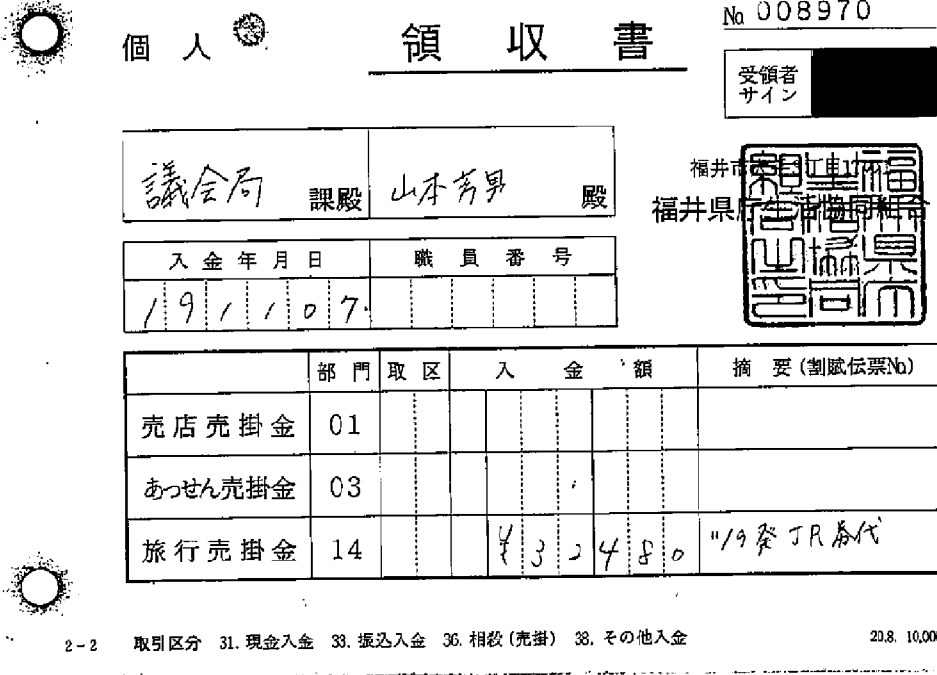 No 008970
個人 領収書
受領者
サイン
議会局 課殿 山本芳男 殿
福井市
福井県庁生活協同組合
入金年月日 職員番号
191107
部門 取区 入金額 摘要(割賦伝票No)
売店売掛金 01
あっせん売掛金 03
旅行売掛金 14 ¥32480 11/9発 JR券代
2-2 取引区分 31. 現金入金 33. 振込入金 36. 相殺(売掛) 38. その他入金 20.8. 10,000